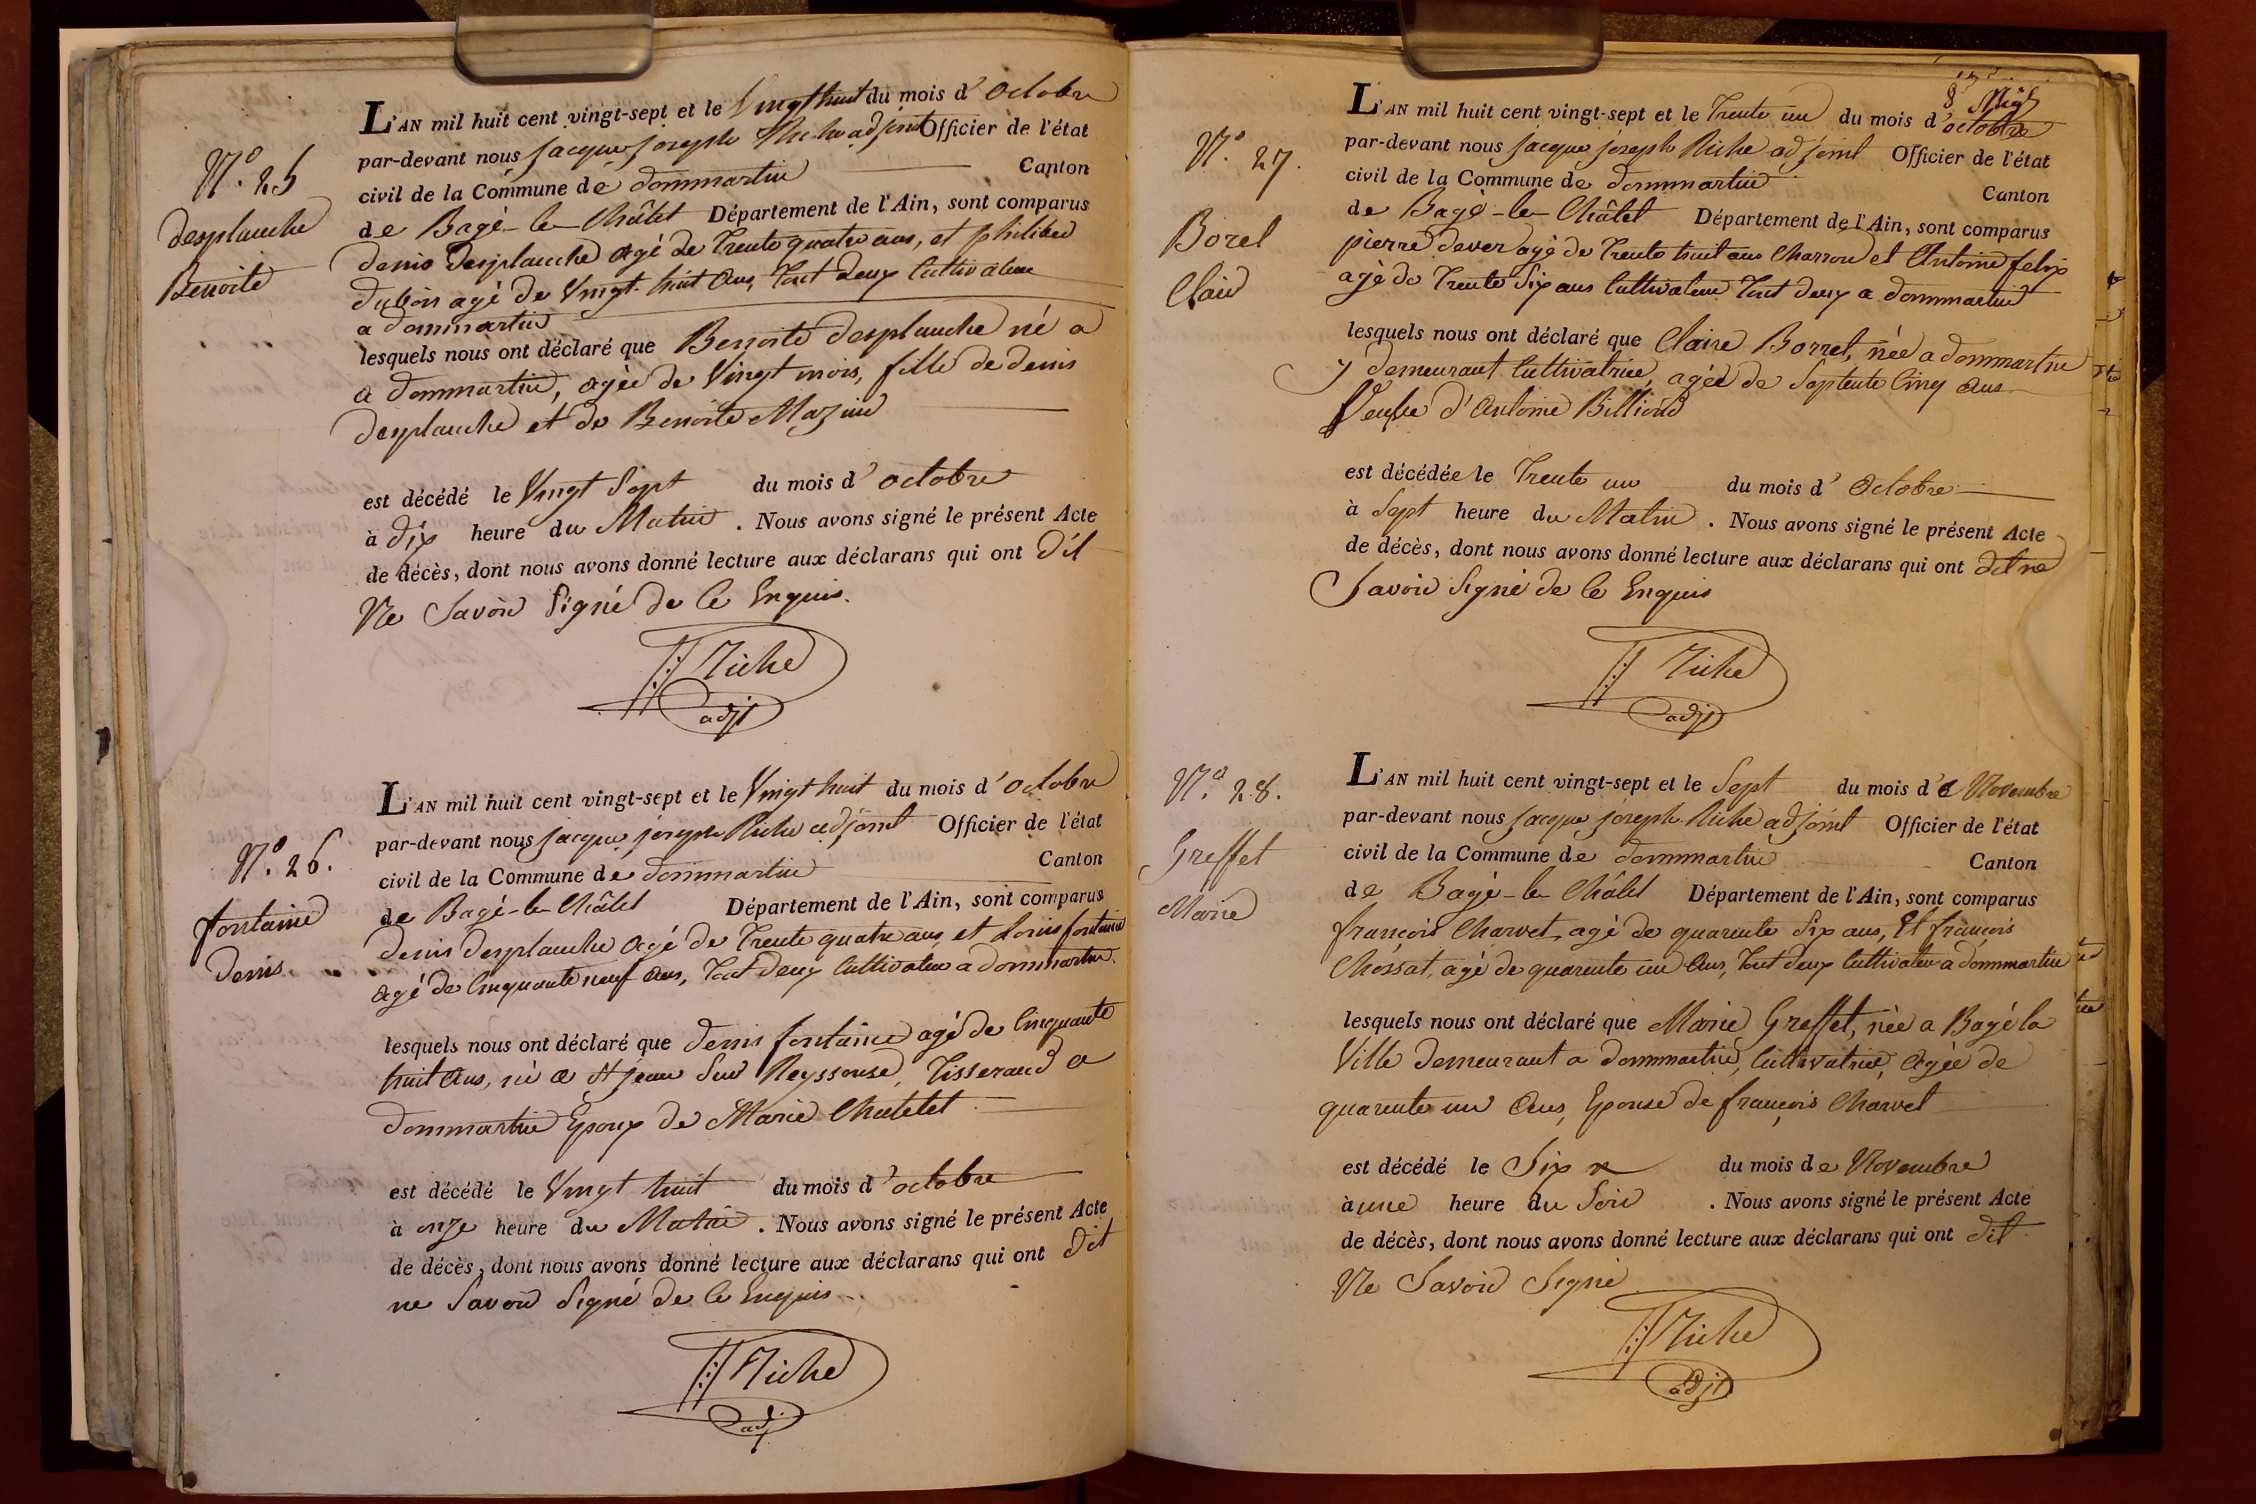 N.° 25
desplanche
Benoite
L'AN mil huit cent vingt-sept et le Vingt huit du mois d'octobre
par-devant nous jacque joseph Riche adjoint Officier de l'état
civil de la Commune de dommartin Canton
de Bagé-le-Châtel Département de l'Ain, sont comparus
denis desplanche agé de Trente quatre ans, et philiber
dubois agé de Vingt-huit ans, Tout deux Cultivateur
a dommartin
lesquels nous ont déclaré que Benoite desplanche né a
a dommartin, agée de Vingt mois, fille de denis
desplanche et de Benoite Mazuir
est décédé le Vingt Sept du mois d'octobre
à dix heure du Matin. Nous avons signé le présent Acte
de décès, dont nous avons donné lecture aux déclarans qui ont dit
Ne Savoir Signé de Ce Enquis.
JJ Riche
adjt
N.° 26.
fontaine
denis
L'AN mil huit cent vingt-sept et le Vingt huit du mois d'octobre
par-devant nous jacque joseph Riche adjoint Officier de l'état
civil de la Commune de dommartin Canton
de Bagé-le-Châtel Département de l'Ain, sont comparus
denis desplanche agé de Trente quatre ans, et Louis fontaine
agé de Cinquante neuf ans, Tout deux Cultivateur a dommartin.
lesquels nous ont déclaré que denis fontaine agé de Cinquante
huit ans, né a St jean Sur Reyssouse, Tisserand a
dommartin Epoux de Marie Chatelet
est décédé le Vingt huit du mois d'octobre
à onze heure du Matin. Nous avons signé le présent Acte
de décès, dont nous avons donné lecture aux déclarans qui ont dit
ne Savoir Signé de Ce Enquis.
JJ Riche
adj
N.° 27.
Borel
Clair
L'AN mil huit cent vingt-sept et le Trente un du mois d'octobre
par-devant nous jacque joseph Riche adjoint Officier de l'état
civil de la Commune de dommartin Canton
de Bagé-le-Châtel Département de l'Ain, sont comparus
pierre dever agé de Trente huit ans Charron et Antoine felix
agé de Trente Six ans Cultivateur Tout deux a dommartin
lesquels nous ont déclaré que Claire Borret, née a dommartin
y demeurant Cultivatrice, agée de Septente Cinq ans
Veuve d'Antoine Billioud
est décédée le Trente un du mois d'Octobre
à Sept heure du Matin. Nous avons signé le présent Acte
de décès, dont nous avons donné lecture aux déclarans qui ont dit ne
Savoir Signé de Ce Enquis
JJ Riche
adjt
N.° 28.
Greffet
Marie
L'AN mil huit cent vingt-sept et le Sept du mois d'e Novembre
par-devant nous jacque joseph Riche adjoint Officier de l'état
civil de la Commune de dommartin Canton
de Bagé-le-Châtel Département de l'Ain, sont comparus
françois Charvet, agé de quarente Six ans, Et françois
Chossat, agé de quarente un Ans, Tout deux Cultivateur a dommartin
lesquels nous ont déclaré que Marie Greffet, née a Bagé la
Ville demeurant a dommartin, Cultivatrice, agée de
quarente un ans, Epouse de françois Charvet
est décédé le Six du mois de Novembre
à une heure du Soir. Nous avons signé le présent Acte
de décès, dont nous avons donné lecture aux déclarans qui ont dit
Ne Savoir Signé
JJ Riche
adjt